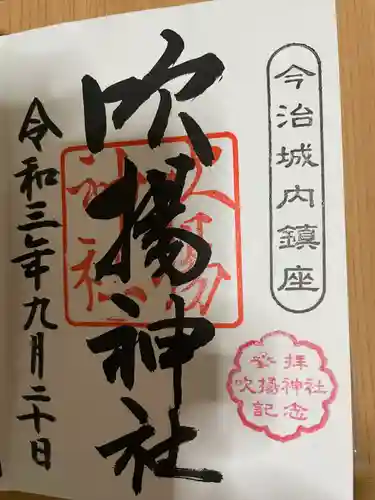 今治城内鎮座
吹揚神社
吹揚
神社
登拝
吹揚神社
記念
令和三年九月二十日